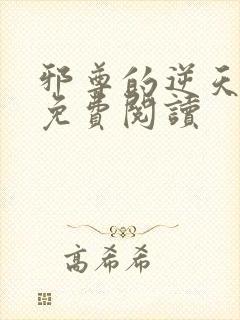 邪尊的逆天
免費閱讀
高希希